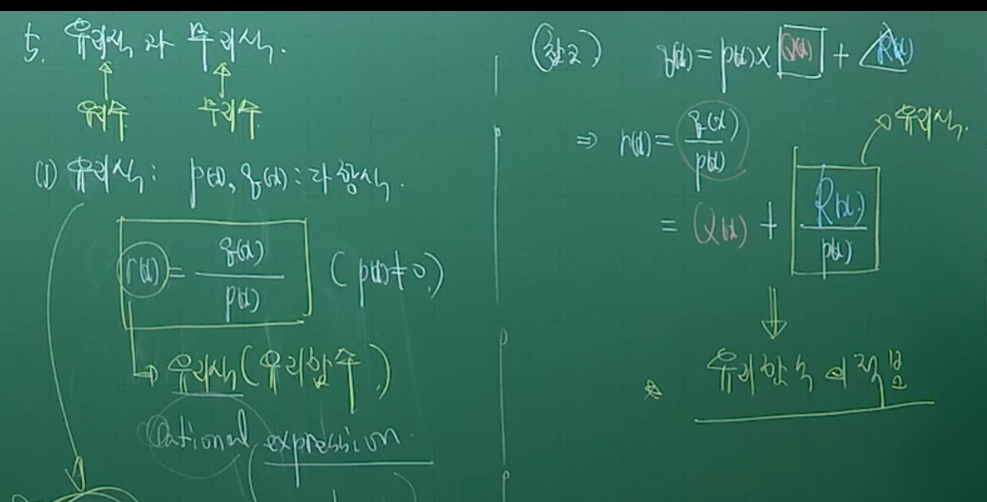 5. 유리식과 무리식.
유리수 무리수
(1) 유리식: p(x), q(x): 다항식.
r(x) = q(x)/p(x) (p(x)≠0)
→ 유리식(유리함수)
Rational expression
(참고) q(x) = p(x) × Q(x) + R(x)
⇒ r(x) = q(x)/p(x)
유리식.
= Q(x) + R(x)/p(x)
유리함수의 적분